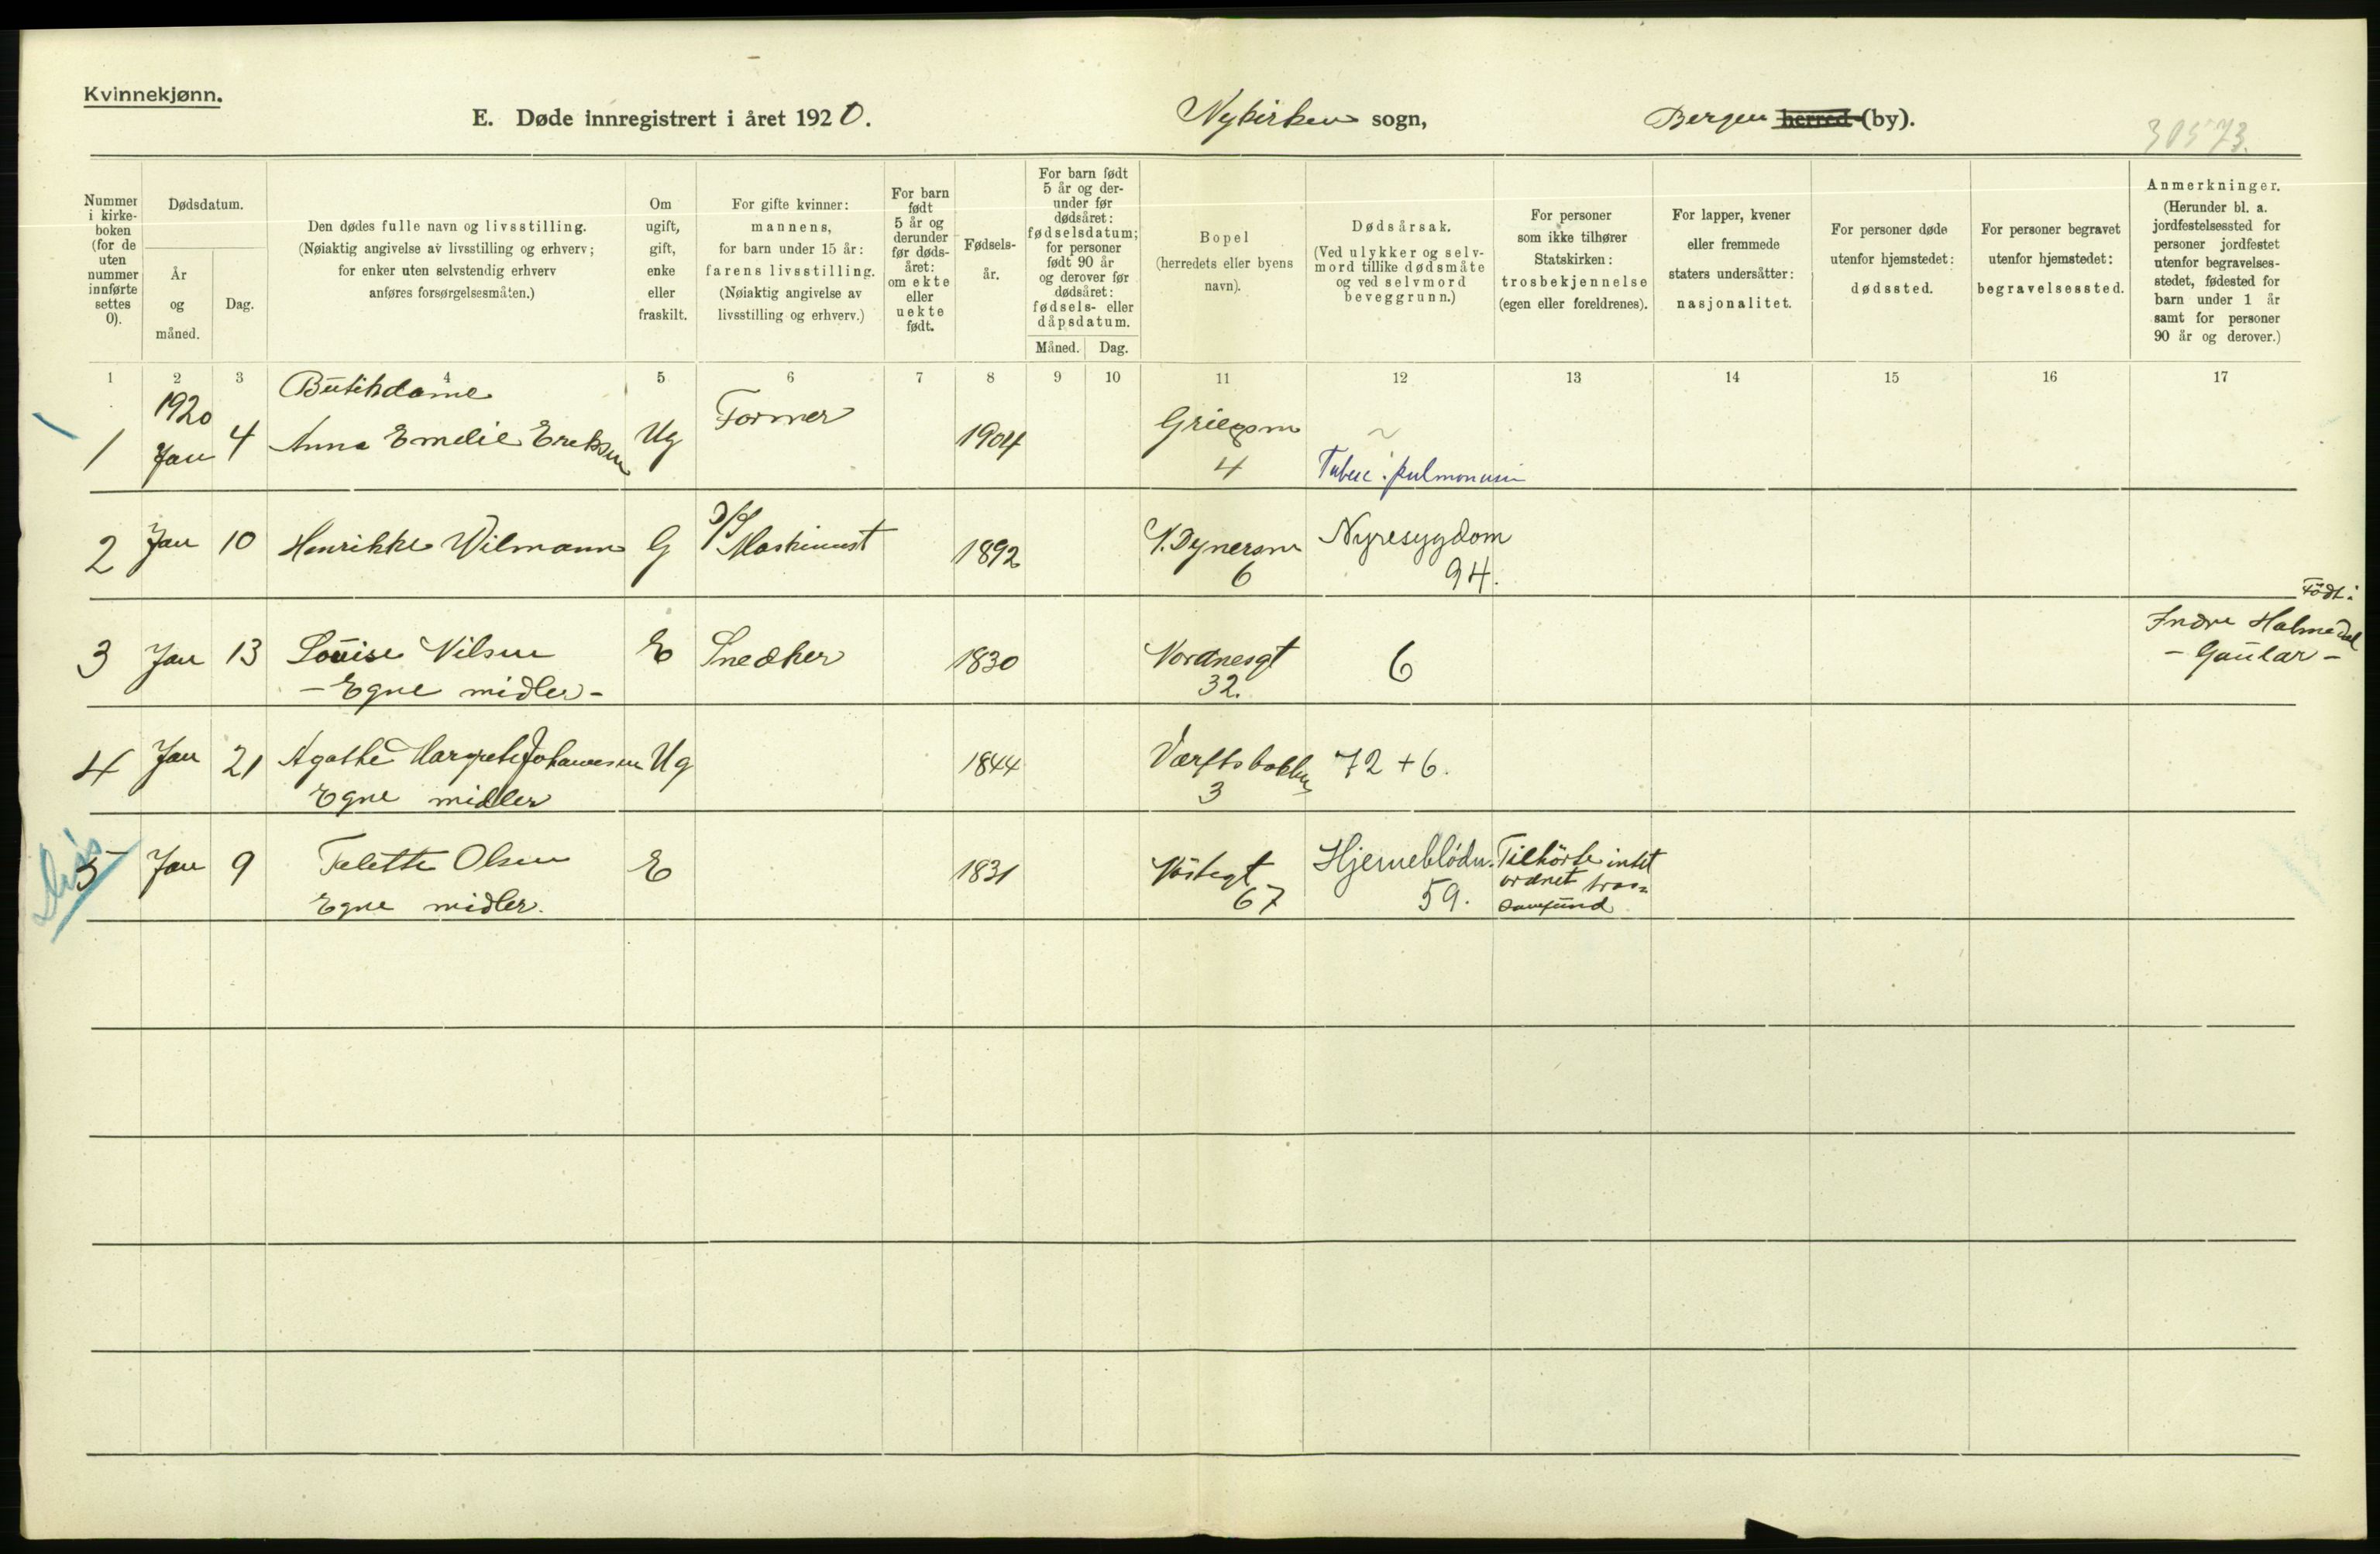 Kvinnekjønn.
E. Døde innregistrert i året 1920.
Nykirken sogn,
Bergen herred (by).
30573.
Nummer i kirke-boken (for de uten nummer innførte settes 0).
Dødsdatum.
År og måned.
Dag.
Den dødes fulle navn og livsstilling.
(Nøiaktig angivelse av livsstilling og erhverv;
for enker uten selvstendig erhverv
anføres forsørgelsesmåten.)
Om ugift, gift, enke eller fraskilt.
For gifte kvinner:
mannens,
for barn under 15 år:
farens livsstilling.
(Nøiaktig angivelse av
livsstilling og erhverv.)
For barn født 5 år og derunder før døds-året: om ekte eller uekte født.
Fødsels-år.
For barn født 5 år og der-under før dødsåret: fødselsdatum; for personer født 90 år og derover før dødsåret: fødsels- eller dåpsdatum.
Måned.
Dag.
Bopel
(herredets eller byens
navn).
Dødsårsak.
(Ved ulykker og selv-
mord tillike dødsmåte
og ved selvmord
beveggrunn.)
For personer
som ikke tilhører
Statskirken:
trosbekjennelse
(egen eller foreldrenes).
For lapper, kvener
eller fremmede
staters undersåtter:
nasjonalitet.
For personer døde
utenfor hjemstedet:
dødssted.
For personer begravet
utenfor hjemstedet:
begravelsessted.
Anmerkninger.
(Herunder bl. a.
jordfestelsessted for
personer jordfestet
utenfor begravelses-
stedet, fødested for
barn under 1 år
samt for personer
90 år og derover.)
1 2 3 4 5 6 7 8 9 10 11 12 13 14 15 16 17
1920 Butikdame
1 Jan 4 Anna Emelie Eriksen Ug Former 1904 Griegsm 4 Tuberc. pulmonum
2 Jan 10 Henrikke Wilmann G D/S Maskinist 1892 N. Dynersm 6 Nyresygdom 94.
3 Jan 13 Louise Nilsen E Snedker 1830 Nordnesgt 32. 6 Født: Indre Holmedal
- Egne midler - - Gaular -
4 Jan 21 Agathe Margrete Johannesen Ug 1844 Værftsbakken 3 72 + 6.
Egne midler
5 Jan 9 Talette Olsen E 1831 67 Hjerneblødn. 59. Tilhörte intet ordnet tros= samfund
Egne midler.
Diss